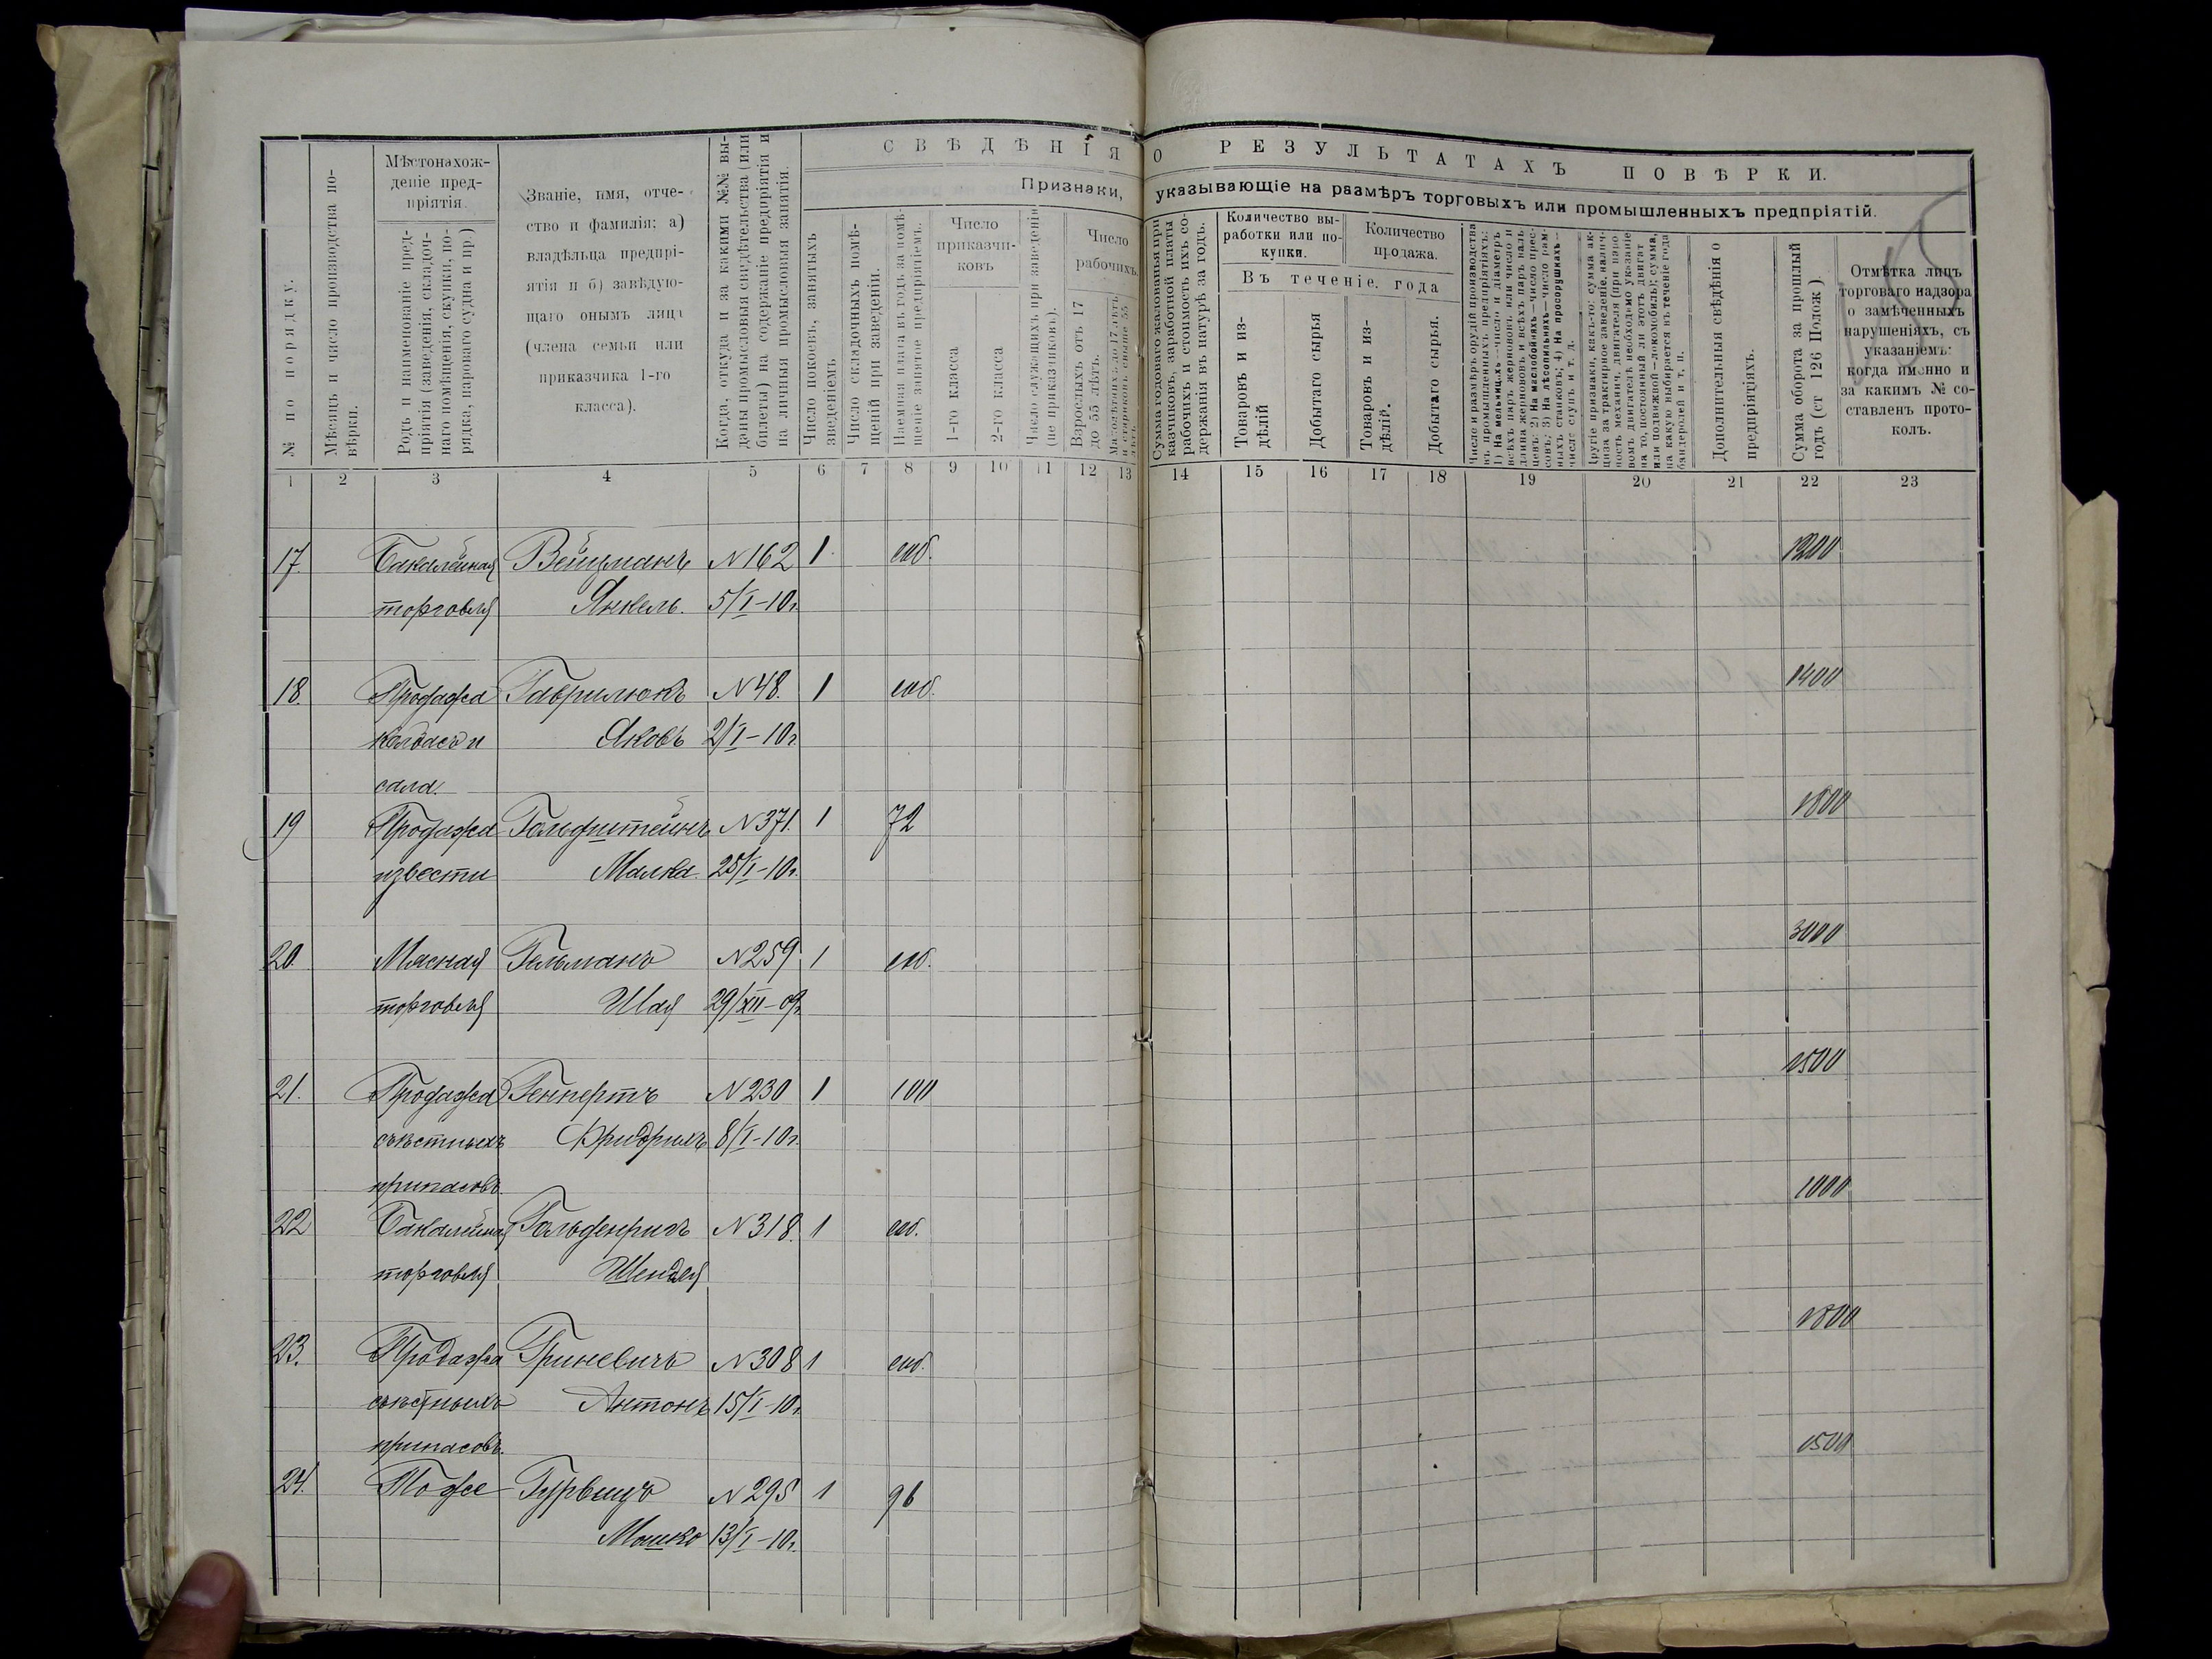 СВѢДѢНІЯ О РЕЗУЛЬТАТАХЪ ПОВѢРКИ.
Признаки, указывающіе на размѣръ торговыхъ или промышленныхъ предпріятій.
№ по порядку.
Мѣсяцъ и число производства по-
вѣрки.
Мѣстонахож-
деніе пред-
пріятія.
Родъ и наименованіе пред-
пріятія (заведенія, складоч-
наго помѣщенія, скупки, по-
рядка, парового судна и пр.)
Званіе, имя, отче-
ство и фамилія: а)
владѣльца предпрі-
ятія и б) завѣдую-
щаго онымъ лица
(члена семьи или
приказчика 1-го
класса).
Когда, откуда и за какими №№ вы-
даны промысловыя свидѣтельства (или
билеты) на содержаніе предпріятія и
на личныя промысловыя занятія.
Число покоевъ, занятыхъ
зведеніемъ
Число складочныхъ помѣ-
щеній при заведеніи.
Наемная плата въ годъ за помѣ-
щеніе занятое предпріятіемъ.
Число
приказчи-
ковъ
1-го класса
2-го класса
Число служащихъ при заведеніи
(не приказчиковъ).
Число
рабочихъ.
Взрослыхъ отъ 17
до 55 лѣтъ.
Малолѣтнихъ до 17 лѣтъ
и стариковъ свыше 55
лѣтъ.
Сумма годоваго жалованья при-
казчиковъ, заработной платы
рабочихъ и стоимость ихъ со-
держанія въ натурѣ за годъ.
Количество вы-
работки или по-
купки.
Количество
продажа.
Въ теченіе года
Товаровъ и из-
дѣлій
Добытаго сырья
Товаровъ и из-
дѣлій.
Добытаго сырья.
Число и размѣръ орудій производства
въ промышленныхъ предпріятіяхъ:
1) На мельницахъ—число и діаметръ
всѣхъ паръ жернововъ или число и
длина жернововъ и всѣхъ паръ валь-
цевъ: 2) На маслобойняхъ—число прес-
совъ; 3) На лѣсопильняхъ—число рам-
ныхъ станковъ; 4) На просорушкахъ—
число ступъ и т. д.
Другіе признаки, какъ-то: сумма ак-
циза за трактирное заведеніе, налич-
ность механич. двигателя (при паро-
вомъ двигателѣ необходимо указаніе
на то, постоянный ли этотъ двигат
или подвижной—локомобиль); сумма,
на какую выбирается въ теченіе года
бандеролей и т. п.
Дополнительныя свѣдѣнія о
предпріятіяхъ.
Сумма оборота за прошлый
годъ (ст 126 Полож.)
Отмѣтка лицъ
торговаго надзора
о замѣченныхъ
нарушеніяхъ, съ
указаніемъ:
когда именно и
за какимъ № со-
ставленъ прото-
колъ.
1 2 3 4 5 6 7 8 9 10 11 12 13 14 15 16 17 18 19 20 21 22 23
17. Бакалейная Вейцманъ №162 1 соб. 1200
торговля Янкель. 5/I-10г.
18. Продажа Гаврилюкъ №48. 1 соб. 1400
колбасъ и Яковъ 2/I-10г.
сала.
19 Продажа Гольдштейнъ №371. 1 72 1800
извести Малка. 25/I-10г.
20. Мясная Гельманъ №259 1 соб. 3000
торговля Шая 29/XII-09г.
21. Продажа Геппертъ №230 1 100 1500
съѣстныхъ Фридрихъ 8/I-10г.
припасовъ.
22 Бакалейная №318. 1 соб. 1000
торговля Шендля
23. Продажа Гриневичъ №308 1 соб. 1800
съѣстныхъ Антонъ 15/I-10г.
припасовъ.
24. Тоже Гурвицъ №295 1 96 1500
Мошко 13/I-10г.